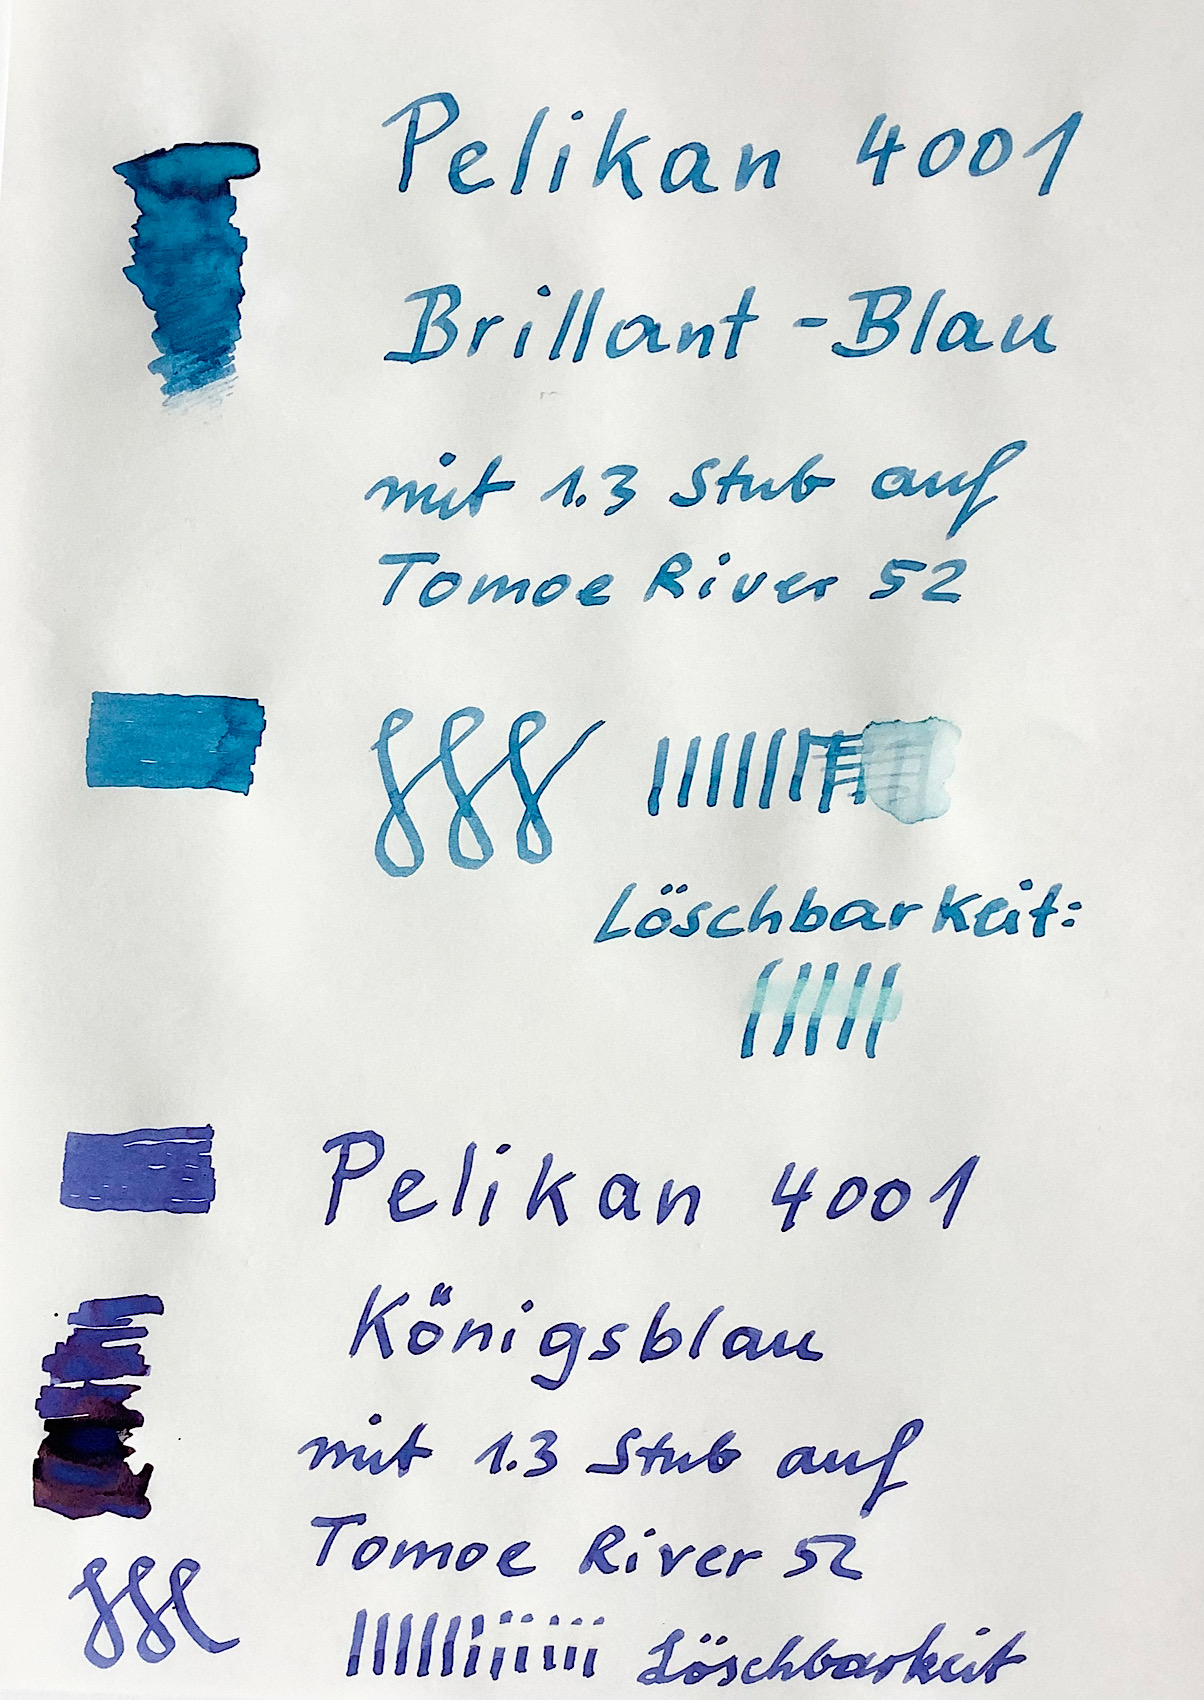 Pelikan 4001
Brillant-Blau
mit 1.3 Stub auf
Tomoe River 52
Löschbarkeit:
Pelikan 4001
Königsblau
mit 1.3 Stub auf
Tomoe River 52
Löschbarkeit